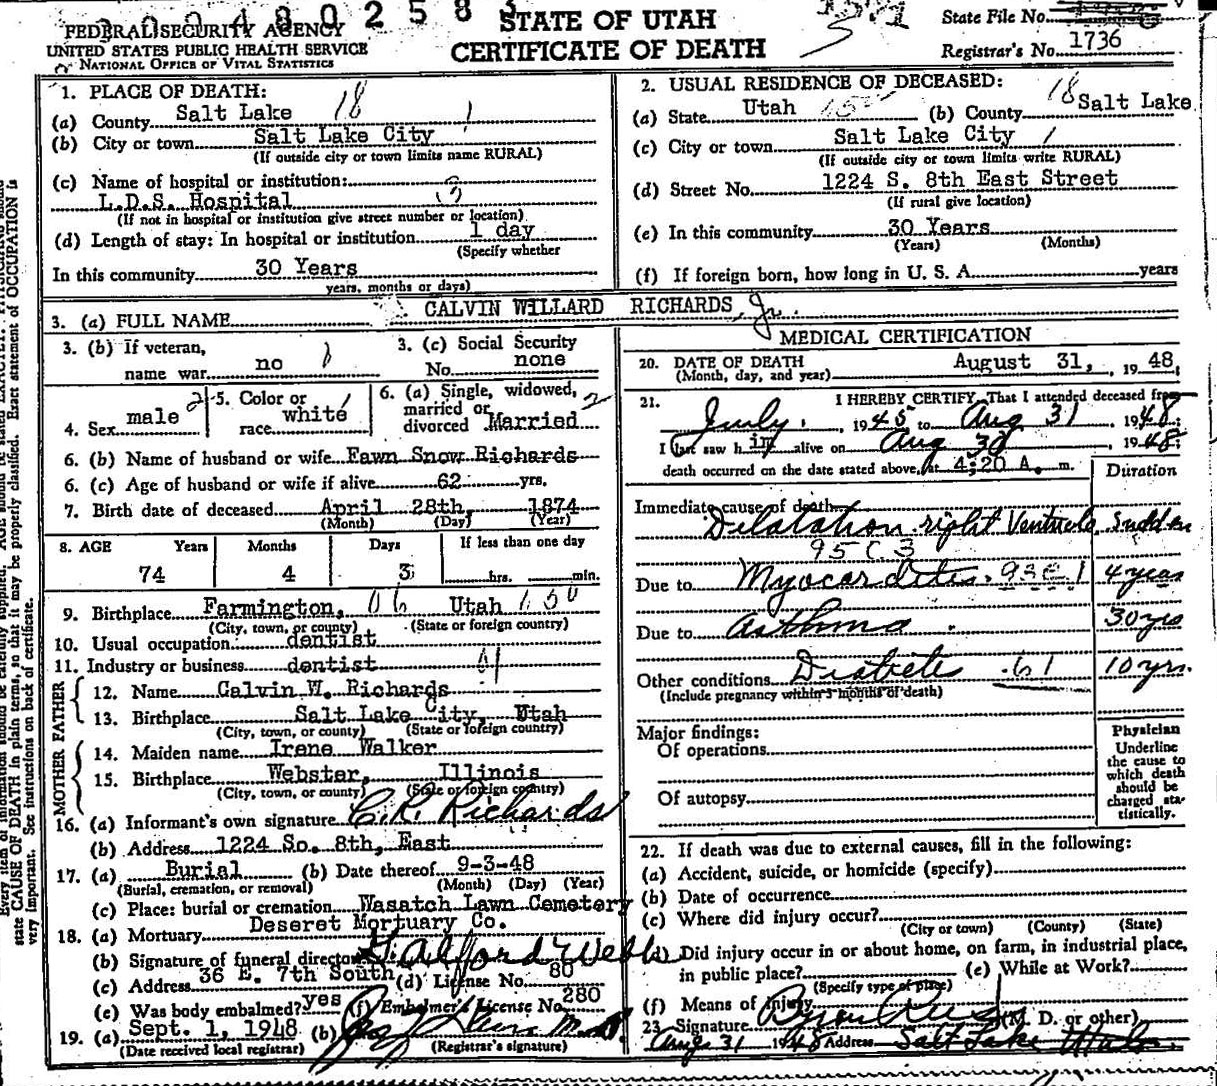 2 0 0 4 8 0 2 5 8 3
FEDERAL SECURITY AGENCY
UNITED STATES PUBLIC HEALTH SERVICE
NATIONAL OFFICE OF VITAL STATISTICS
STATE OF UTAH
CERTIFICATE OF DEATH
State File No.
Registrar's No. 1736
1. PLACE OF DEATH:
(a) County Salt Lake 18
(b) City or town Salt Lake City 1
(If outside city or town limits name RURAL)
(c) Name of hospital or institution:
L.D.S. Hospital
(If not in hospital or institution give street number or location)
(d) Length of stay: In hospital or institution 1 day
(Specify whether
In this community 30 Years
years, months or days)
2. USUAL RESIDENCE OF DECEASED:
(a) State Utah (b) County 18 Salt Lake
(c) City or town Salt Lake City 1
(If outside city or town limits write RURAL)
(d) Street No. 1224 S. 8th East Street
(If rural give location)
(e) In this community 30 Years
(Years) (Months)
(f) If foreign born, how long in U. S. A. years
3. (a) FULL NAME CALVIN WILLARD RICHARDS, Jr.
3. (b) If veteran,
name war no
3. (c) Social Security
No. none
4. Sex male 2
5. Color or
race white 1
6. (a) Single, widowed,
married or
divorced Married 2
6. (b) Name of husband or wife Fawn Snow Richards
6. (c) Age of husband or wife if alive 62 yrs.
7. Birth date of deceased April 28th, 1874
(Month) (Day) (Year)
8. AGE Years Months Days If less than one day
74 4 3 hrs. min.
9. Birthplace Farmington, 06 Utah 150
(City, town, or county) (State or foreign country)
10. Usual occupation dentist
11. Industry or business dentist
FATHER
12. Name Calvin W. Richards
13. Birthplace Salt Lake City, Utah
(City, town, or county) (State or foreign country)
MOTHER
14. Maiden name Irene Walker
15. Birthplace Webster, Illinois
(City, town, or county) (State or foreign country)
16. (a) Informant's own signature C.R. Richards
(b) Address 1224 So. 8th, East
17. (a) Burial (b) Date thereof 9-3-48
(Burial, cremation, or removal) (Month) (Day) (Year)
(c) Place: burial or cremation Wasatch Lawn Cemetery
18. (a) Mortuary Deseret Mortuary Co.
(b) Signature of funeral director Halford Webb
(c) Address 36 E. 7th South (d) License No. 80
(e) Was body embalmed? yes (f) Embalmer's License No. 280
19. (a) Sept. 1, 1948 (b)
(Date received local registrar) (Registrar's signature)
MEDICAL CERTIFICATION
20. DATE OF DEATH August 31, 19 48
(Month, day, and year)
21. I HEREBY CERTIFY, That I attended deceased from
July. 1945 to Aug 31 1948;
I last saw him alive on Aug 30 1948;
death occurred on the date stated above, at 4:20 A. m.
Duration
Immediate cause of death
Dilatation right Ventricle Sudden
95C3
Due to Myocarditis. 93E1 4 years
Due to Asthma 30 yrs
Other conditions Diabetes 61 10 yrs.
(Include pregnancy within 3 months of death)
Major findings:
Of operations
Of autopsy
Physician
Underline
the cause to
which death
should be
charged sta-
tistically.
22. If death was due to external causes, fill in the following:
(a) Accident, suicide, or homicide (specify)
(b) Date of occurrence
(c) Where did injury occur?
(City or town) (County) (State)
(d) Did injury occur in or about home, on farm, in industrial place,
in public place? (e) While at Work?
(Specify type of place)
(f) Means of Injury
23. Signature (M. D. or other)
Aug 31 1948 Address Salt Lake Utah
state CAUSE OF DEATH in plain terms, so that it may be properly classified. Exact statement of OCCUPATION is
very important. See instructions on back of certificate.